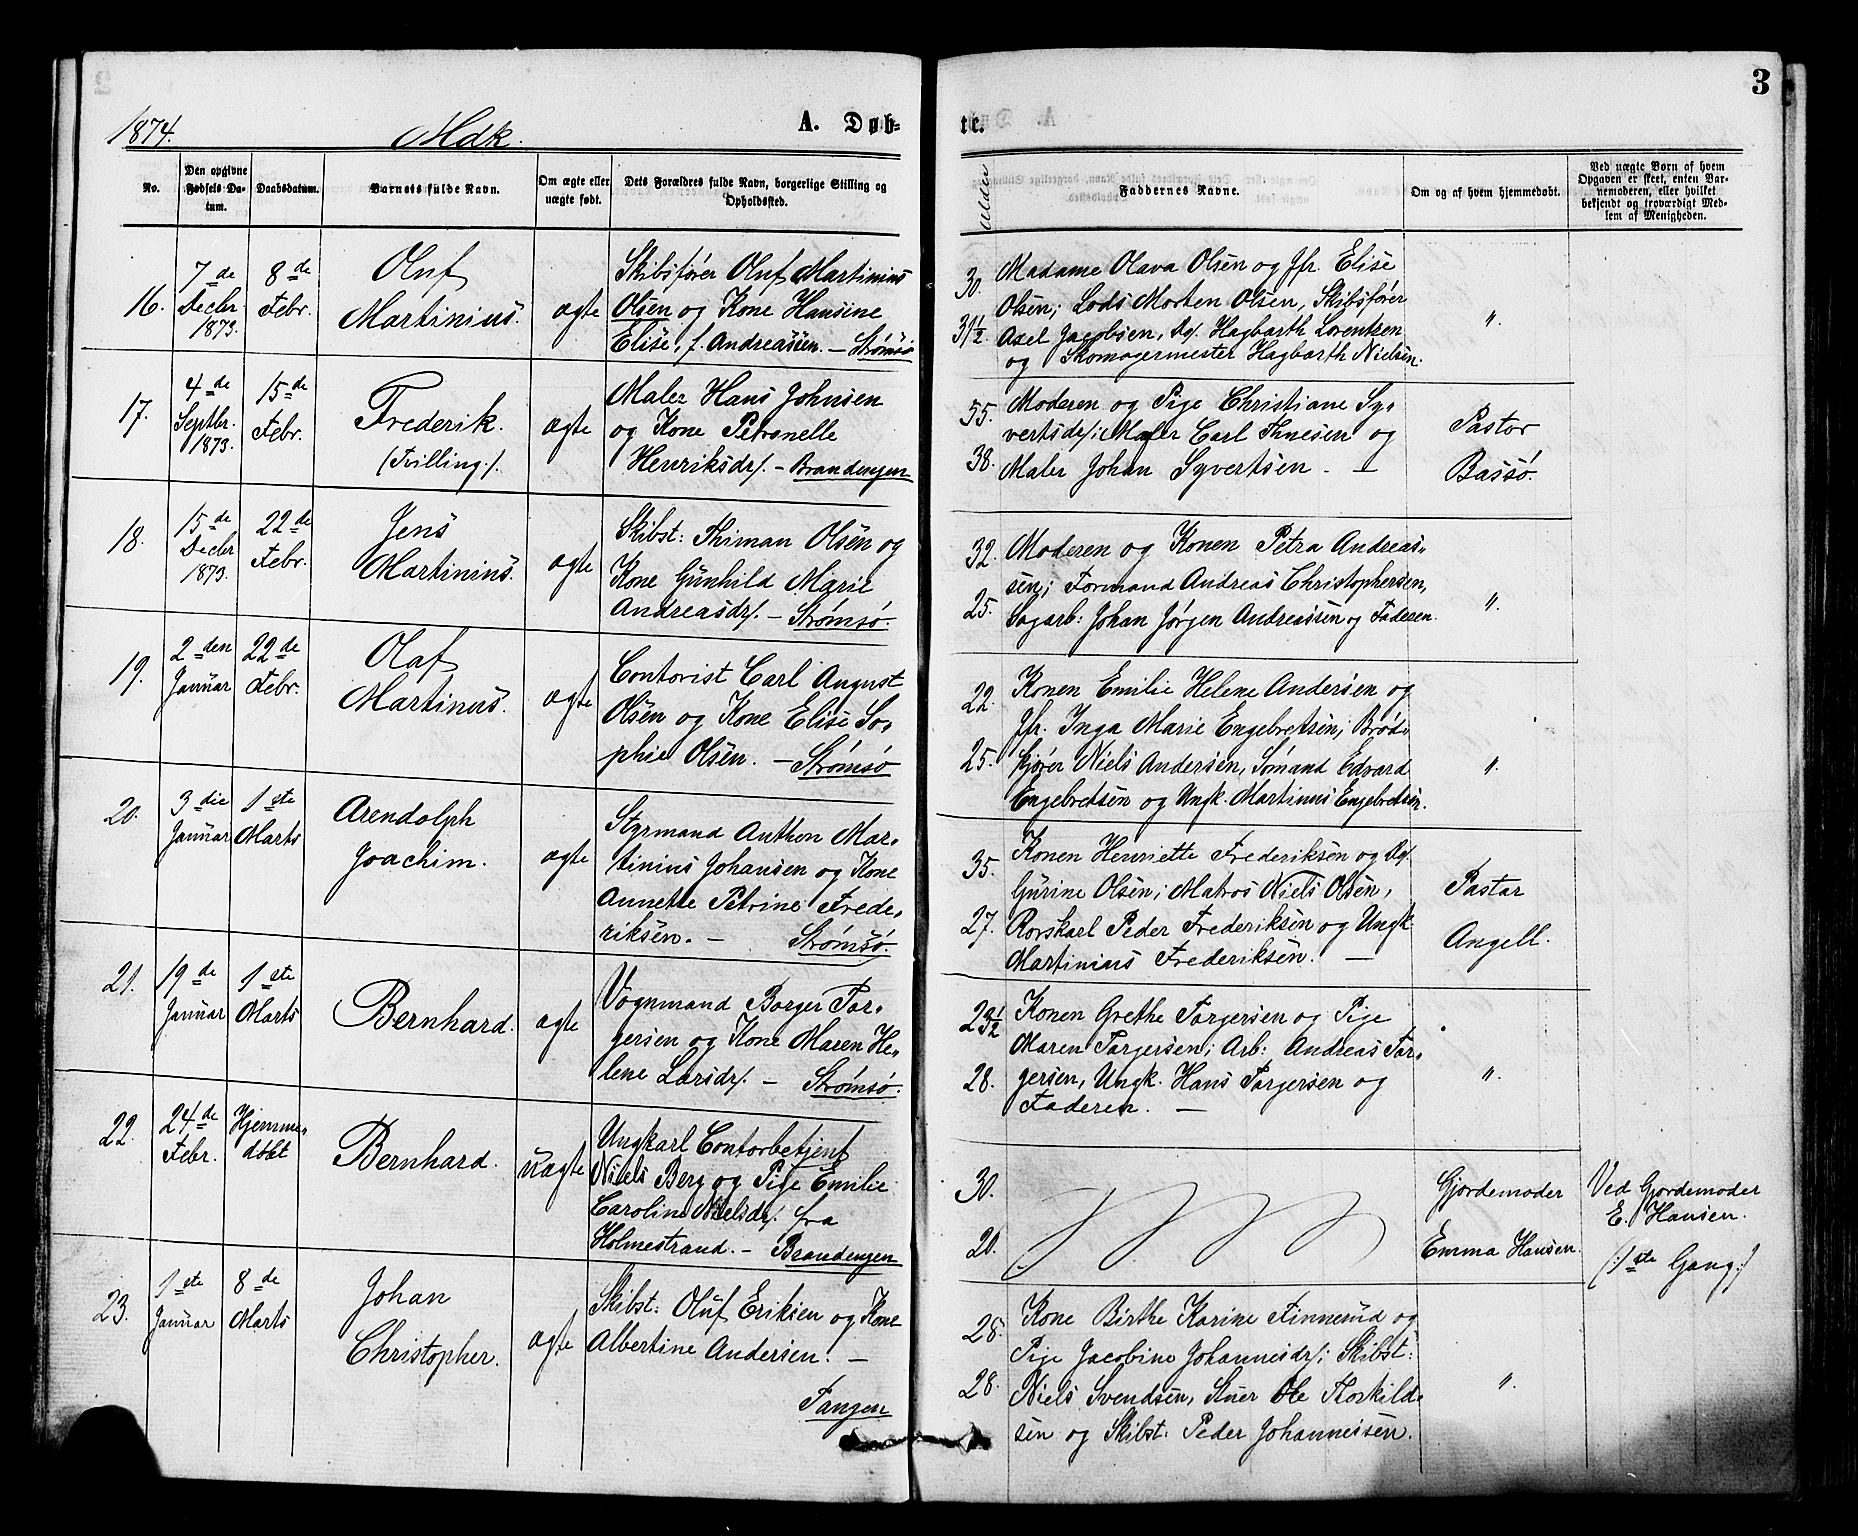 3
1874.
Mdk.
A. Døb-
te.
No.
Den opgivne
Fødsels Da-
tum.
Daabsdatum.
Barnets fulde Navn.
Om ægte eller
uægte født.
Dets Forældres fulde Navn, borgerlige Stilling og
Opholdssted.
Alder
Faddernes Navne.
Om og af hvem hjemmedøbt.
Ved uægte Børn af hvem
Opgaven er skeet, enten Bar-
nemoderen, eller hvilket
bekjendt og troværdigt Med-
lem af Menigheden.
16.
7de
Decbr
1873.
8de
Febr.
Oluf
Martinius.
ægte
Skibsfører Oluf Martinius
Olsen og Kone Hansine
Elise, f. Andreassen. — Strømsø
30.
31 1/2
Madame Olava Olsen og Jfr. Elise
Olsen; Lods Morten Olsen, Skibsfører
Axel Jacobsen, Do/. Hagbarth Lorentzen
og Skomagermester Hagbarth Nielsen.
"
17.
4de
Septbr.
1873.
15de
Febr.
Frederik.
(Tvilling.)
ægte
Maler Hans Johnsen
og Kone Petronelle
Henriksdr/. — Brandengen
55.
38.
Moderen og Pige Christiane Sy-
vertsdr/; Maler Carl Thnesen og
Maler Johan Syvertsen. —
Pastor
Bassö.
18.
15de
Decbr
1873.
22de
Febr.
Jens
Martinius.
ægte
Skibst: Thiman Olsen og
Kone Gunhild Marie
Andreasdr/. — Strømsø.
32.
25.
Moderen og Konen Petra Andreas-
sen; Formand Andreas Christophersen,
Sagarb: Johan Jørgen Andreassen og Faderen.
"
19.
2den
Januar
22de
Febr.
Olaf
Martinus.
ægte
Contorist Carl August
Olsen og Kone Elise So-
phie Olsen. — Strømsø
22.
25.
Konen Emilie Helene Andersen og
Jfr. Inga Marie Engebretsen; Brød-
kjører Niels Andersen, Sømand Edvard
Engebretsen og Ungk. Martinus Engebretsen.
"
20.
3die
Januar
1ste
Marts
Arendolph
Joachim.
ægte
Styrmand Anthon Mar-
tinius Johansen og Kone
Annette Petrine Frede-
riksen. — Strømsø.
35.
27.
Konen Henriette Frederiksen og Do/.
Gurine Olsen; Matros Niels Olsen,
Rorskarl Peder Frederiksen og Ungk.
Martinius Frederiksen. —
Pastor
Angell.
21.
19de
Januar
1ste
Marts
Bernhard.
ægte
Vognmand Borger Tor-
gersen og Kone Maren He-
lene Larsdr/. — Strømsø.
28.
Konen Grethe Torgersen og Pige
Maren Torgersen; Arb: Andreas Tor-
gersen, Ungk. Hans Torgersen og
Faderen. —
"
22.
24de
Febr.
Hjemme-
døbt
Bernhard.
uægte
Ungkarl Contorbetjent
Niels Berg og Pige Emilie
Caroline Nielsdr/. fra
Holmestrand. — Brandengen
30.
20.
Gjordemoder
Emma Hansen.
Ved Gjordemoder
E. Hansen.
(:1ste Gang:)
23.
1ste
Januar
8de
Marts
Johan
Christopher.
ægte
Skibst: Oluf Eriksen og Kone
Albertine Andersen. —
Tangen
28.
28.
Kone Birthe Karine Finnerud og
Pige Jacobine Johannesdr/; Skibst:
Niels Svendsen, Stuer Ole Thorkild-
sen og Skibst: Peder Johannessen.
"